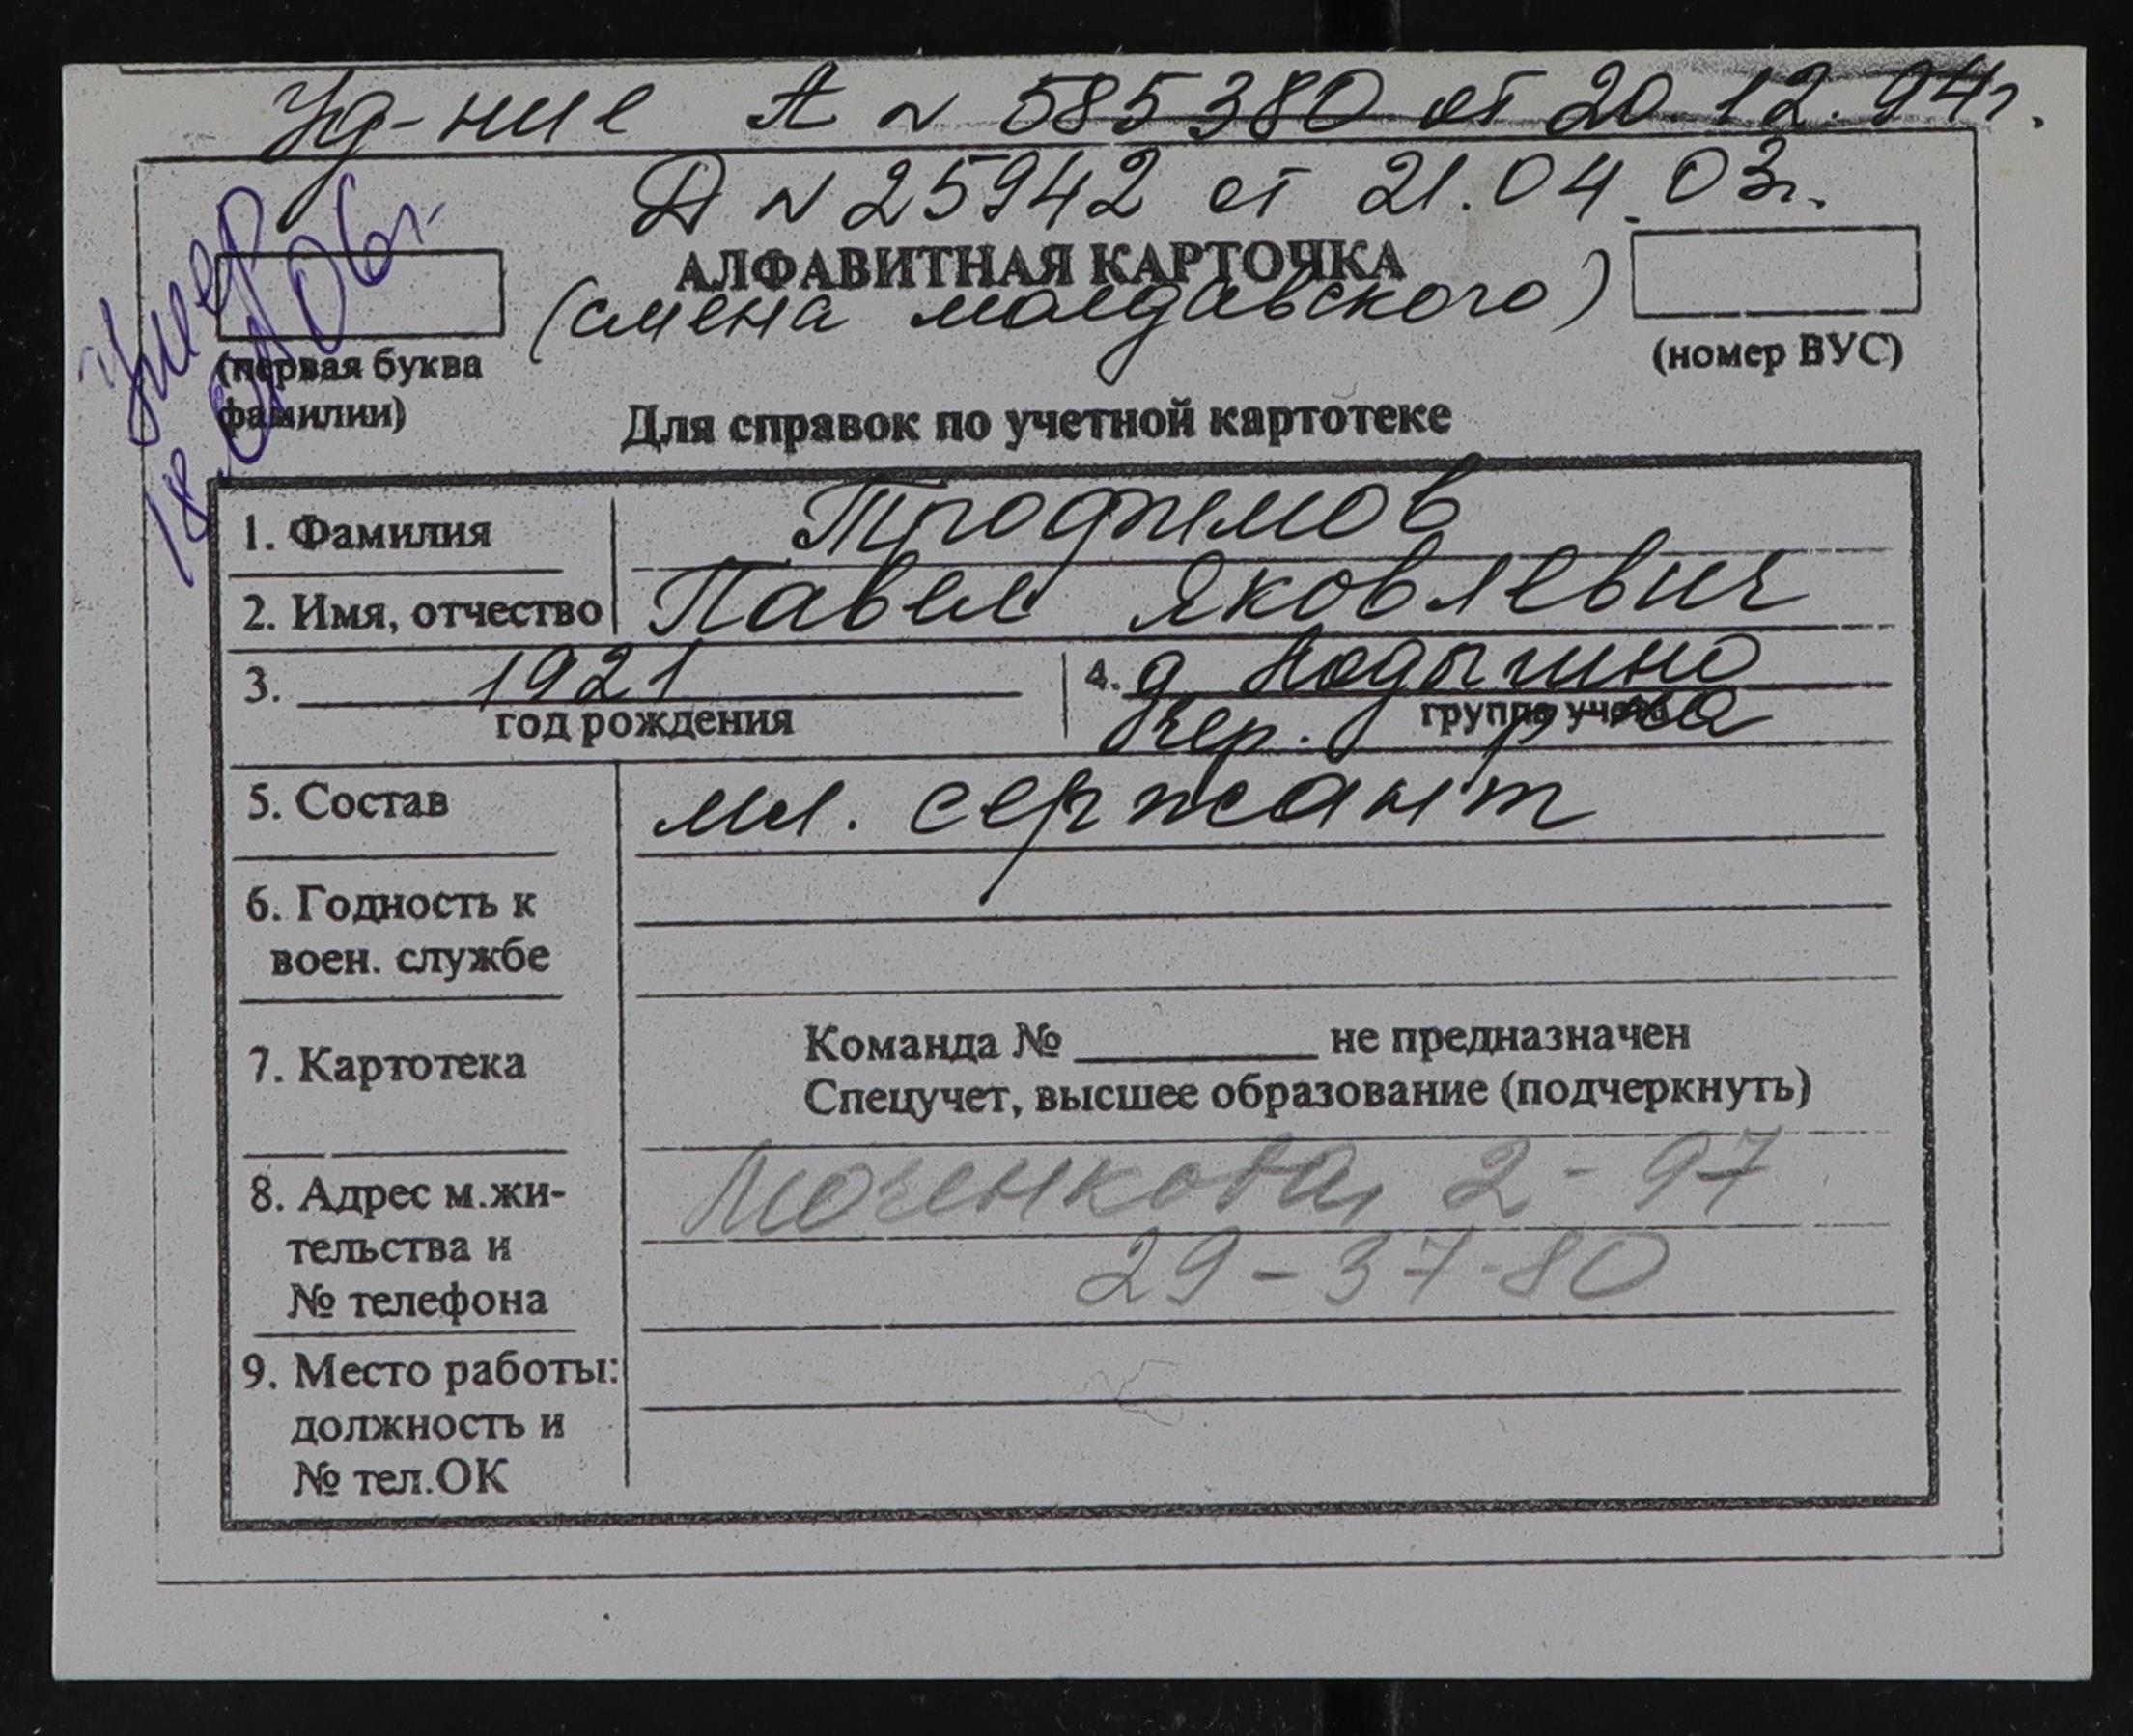 Уд-ние А № 585380 от 20.12.94г.
Д № 25942 от 21.04.03г.
АЛФАВИТНАЯ КАРТОЧКА
(смена молдавского)
умер
18. 06г.
(первая буква
фамилии)
(номер ВУС)
Для справок по учетной картотеке
1. Фамилия Трофимов
2. Имя, отчество Павел Яковлевич
3. 1921
год рождения
4. д
группа учета
Чер. р-на
5. Состав мл. сержант
6. Годность к
воен. службе
7. Картотека
Команда № не предназначен
Спецучет, высшее образование (подчеркнуть)
8. Адрес м.жи-
тельства и
№ телефона
Моченкова, 2-97
29-37-80
9. Место работы:
должность и
№ тел.ОК